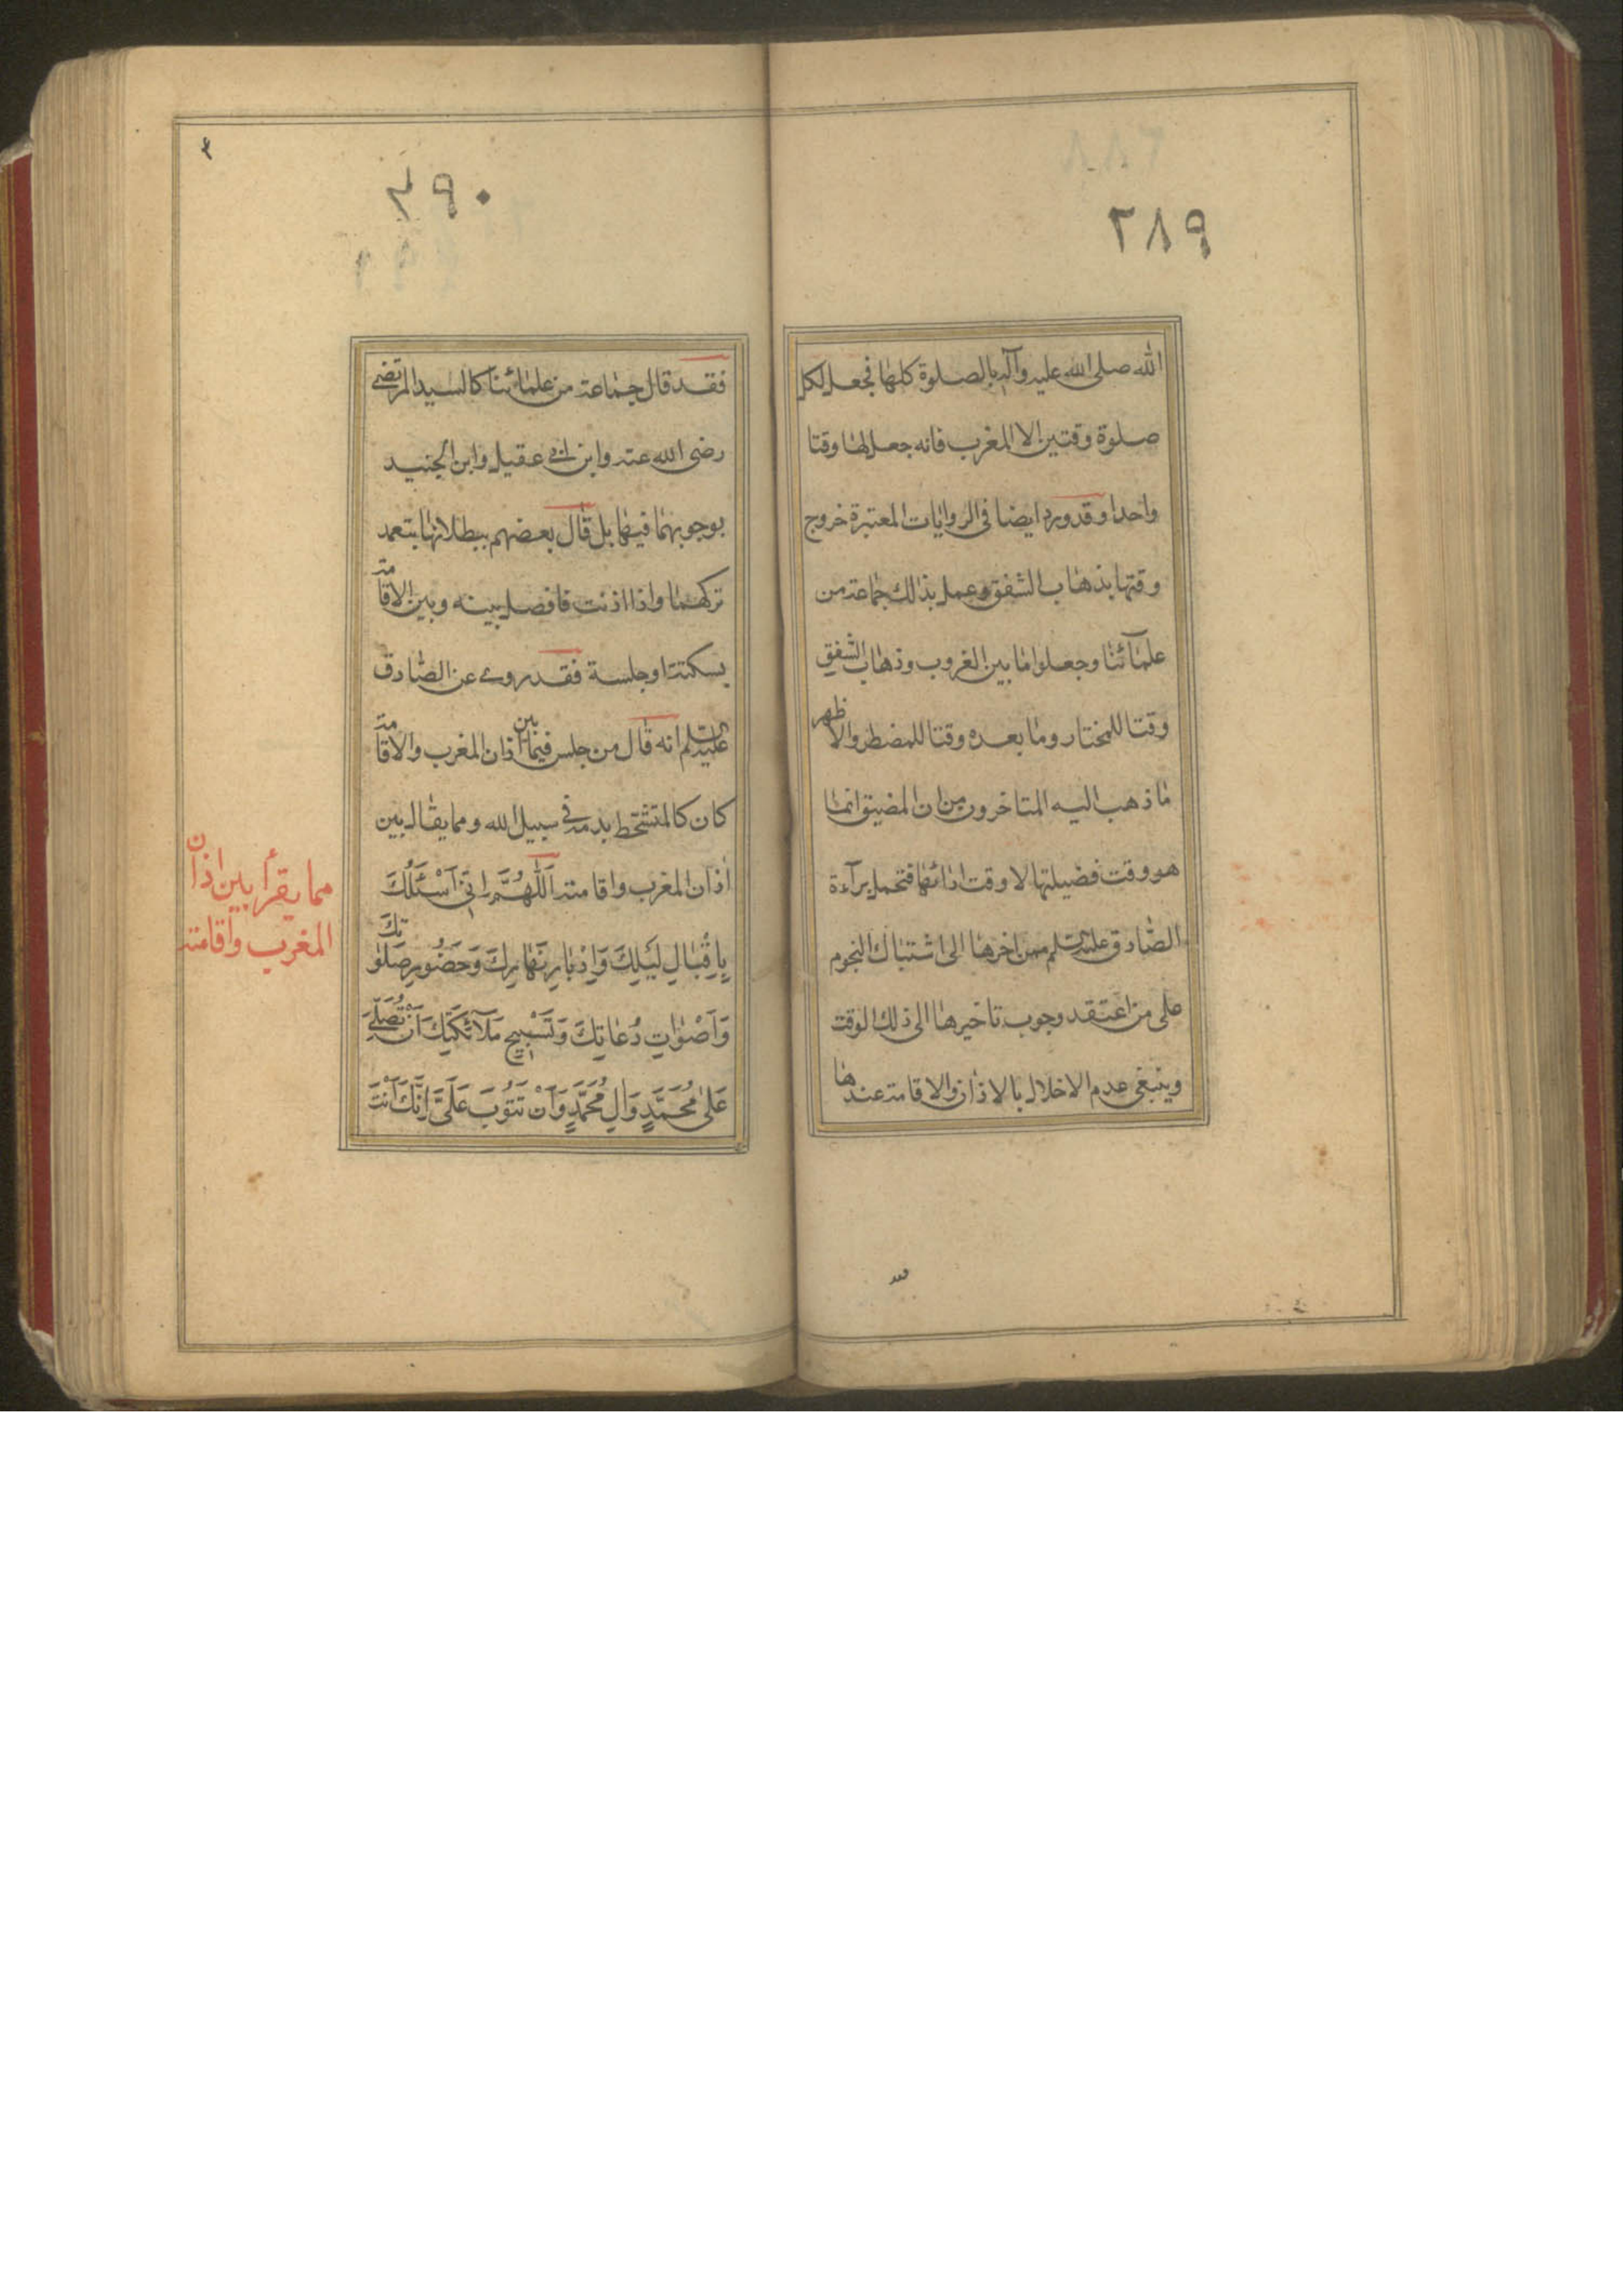 ٢٨٩
الله صلى الله عليه وآله بالصلوة كلها فجعل لكل
صلوة وقتين الا المغرب فانه جعل لها وقتا
واحدا وقد ورد ايضا فى الروايات المعتبرة خروج
وقتها بذهاب الشفق وعمل بذلك جماعة من
علمآئنا وجعلوا ما بين الغروب وذهاب الشفق
وقتا للمختار وما بعده وقتا للمضطر والاظهر
ما ذهب اليه المتاخرون من ان المضيق انما
هو وقت فضيلتها لا وقت ادائها فتحمل برآءة
الصادق عليه السلم ممن اخرها الى اشتباك النجوم
على من اعتقد وجوب تاخيرها الى ذلك الوقت
وينبغى عدم الاخلال بالاذان والاقامة عندها
٢٩٠
فقد قال جماعة من علمائنا كالسيد المرتضى
رضى الله عنه وابن ابى عقيل وابن الجنيد
بوجوبهما فيها بل قال بعضهم ببطلانها بتعمد
تركهما واذا اذنت فافصل بينه وبين الاقامة
بسكتة او جلسة فقد روى عن الصادق
عليه السلم انه قال من جلس فيما بين اذان المغرب والاقامة
كان كالمتشحط بدمه فى سبيل الله ومما يقال بين
اذان المغرب واقامته اَللّٰهُمَّ اِنّى اَسْئَلُكَ
بِاِقْبٰالِ لَيْلِكَ وَاِدْبٰارِ نَهٰارِكَ وَحُضُورِ صَلَوٰاتِكَ
وَاَصْوٰاتِ دُعٰاتِكَ وَتَسْبِيحِ مَلآئِكَتِكَ اَنْ تُصَلِّىَ
عَلىٰ مُحَمَّدٍ وَالِ مُحَمَّدٍ وَاَنْ تَتُوبَ عَلَىَّ اِنَّكَ اَنْتَ
مما يقرأ بين اذان
المغرب واقامته